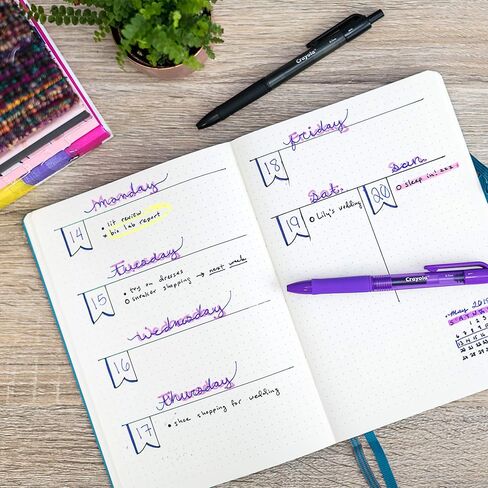 Monday
14
• lit review
• bio lab report
Tuesday
15
• try on dresses
o sneaker shopping → next week
Wednesday
16
Thursday
17
• shoe shopping for wedding
Friday
18
Sat.
19
o Lily's wedding
Sun.
20
o sleep in! zzz
May
Crayola
Crayola